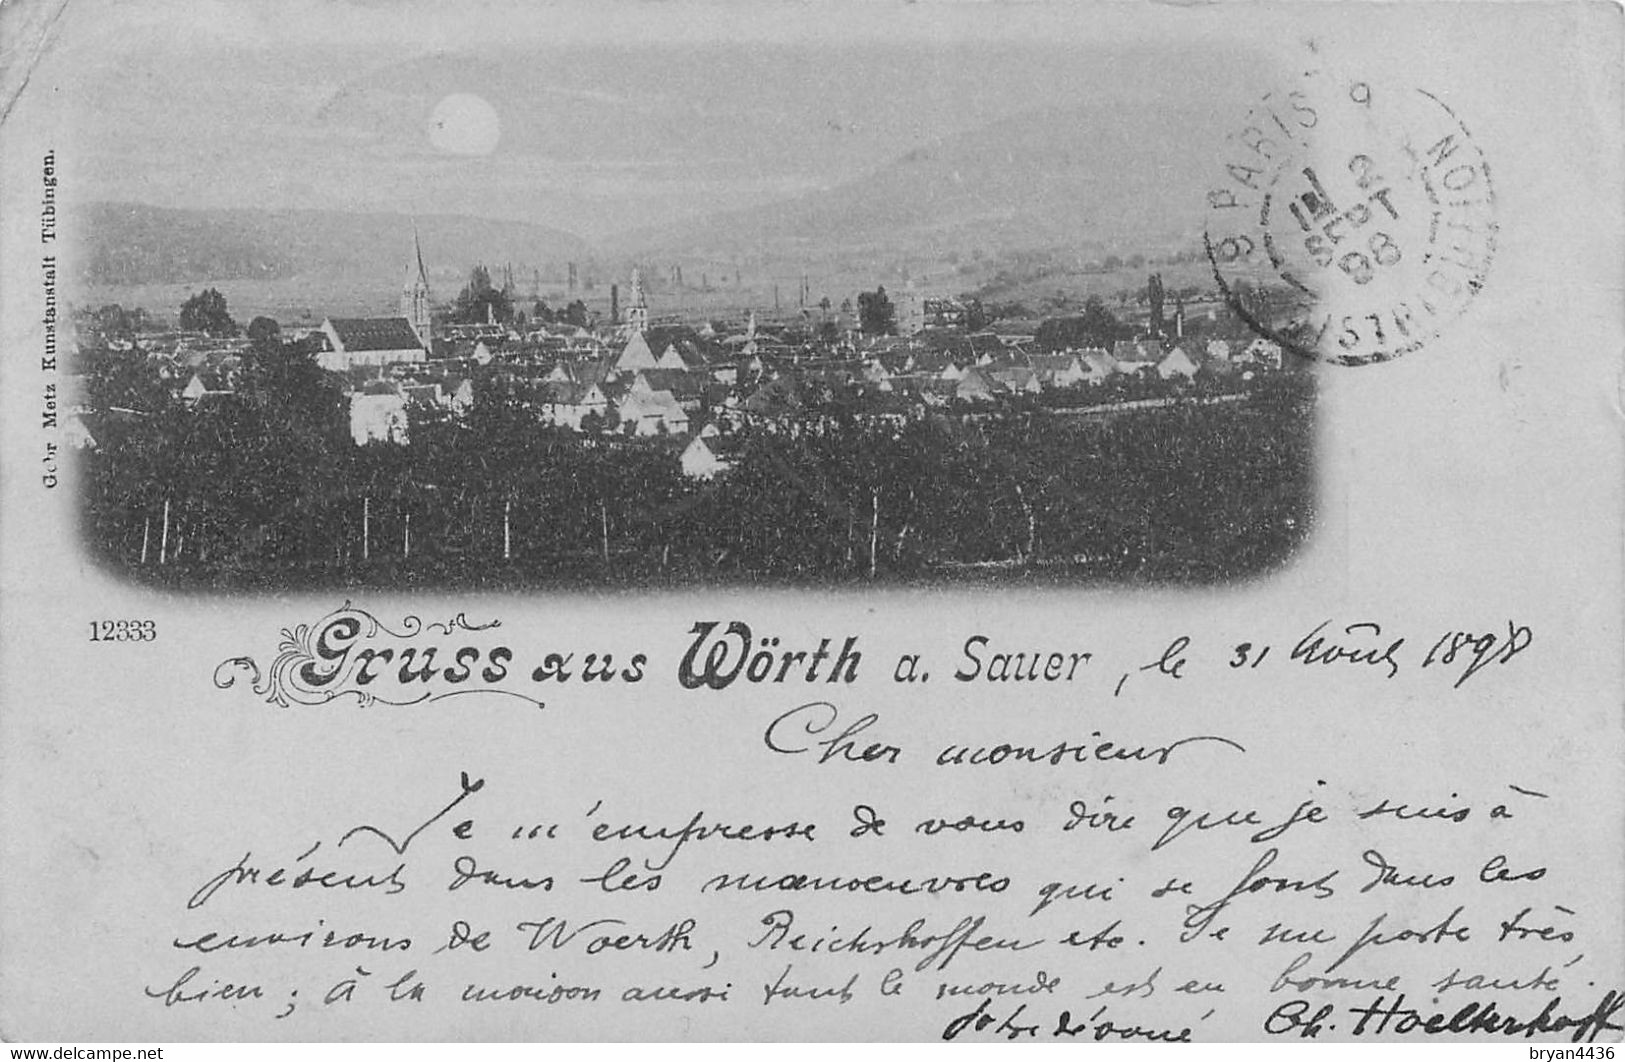 Gebr Metz Kunstanstalt Tübingen.
PARIS 9 DISTRIBUTION 9
2
SEPT
98
12333
Gruss aus Wörth a. Sauer, le 31 Août 1898
Cher monsieur
Je m'empresse de vous dire que je suis à
présent dans les manoeuvres qui se font dans les
environs de Woerth, Reichshoffen etc. Je me porte très
bien ; à la maison aussi tout le monde est en bonne santé.
Votre dévoué Ch.
bryan4436